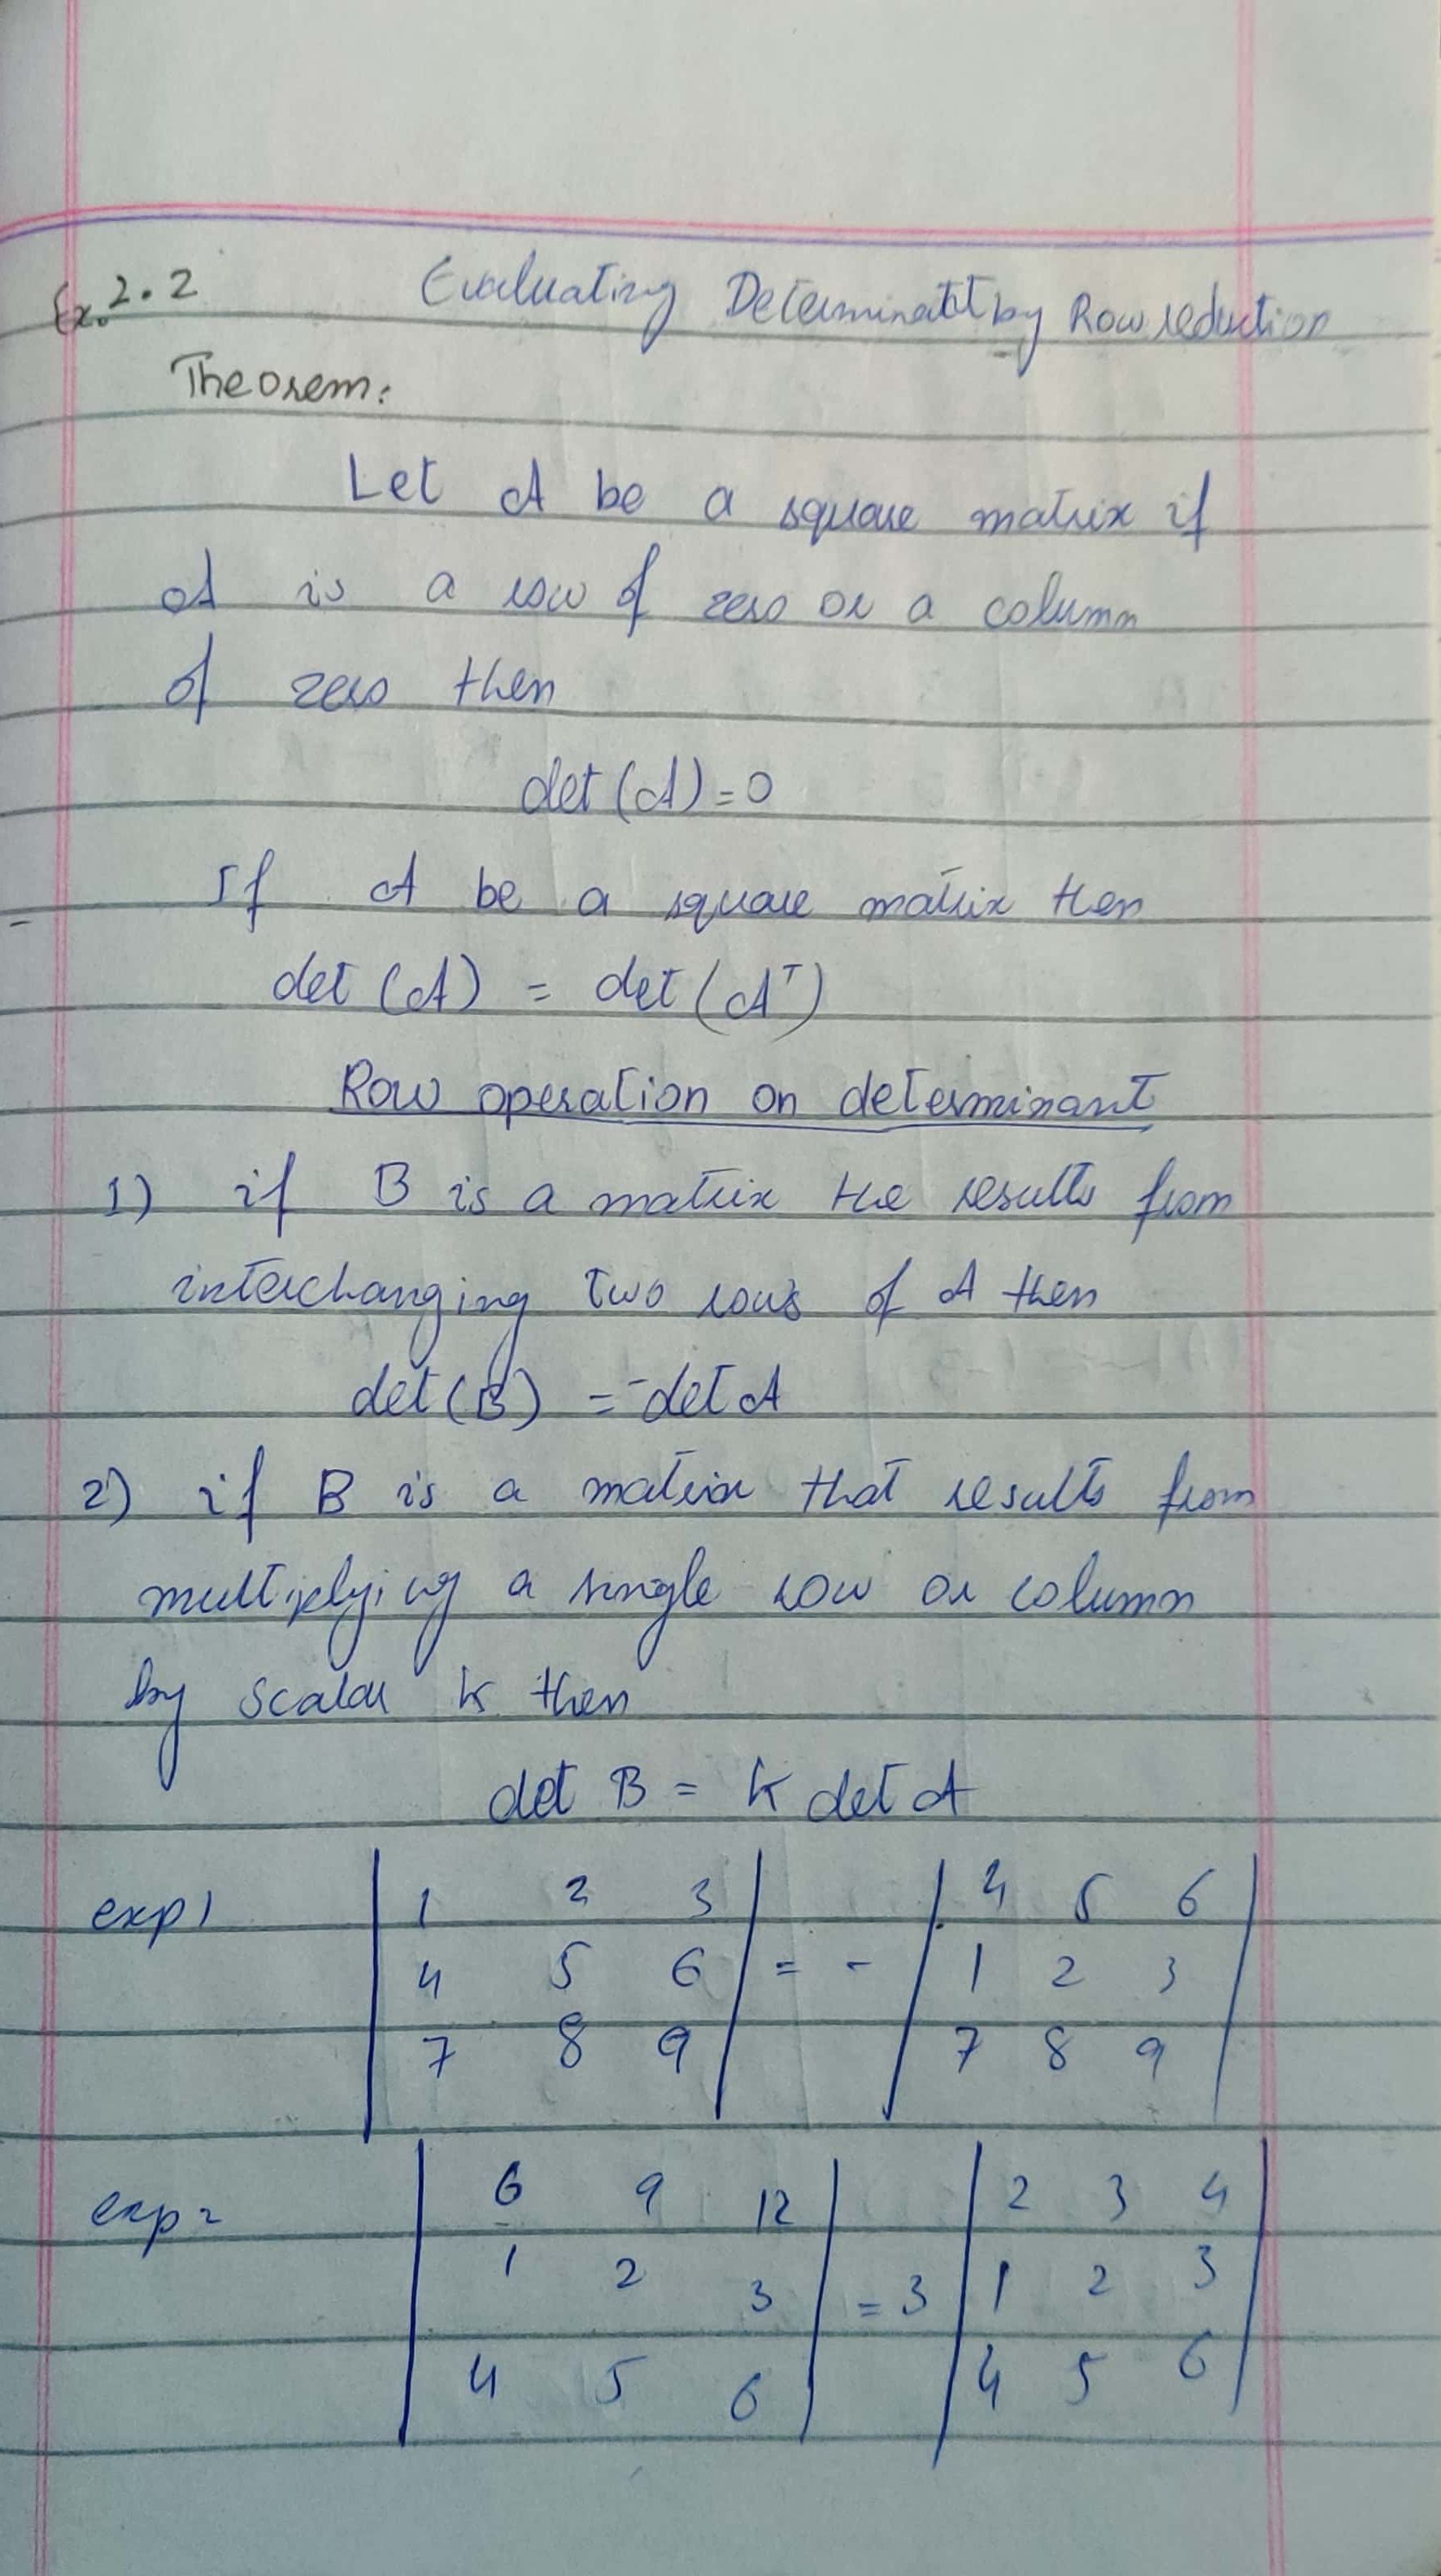 Ex. 2.2 Evaluating Determinant by Row reduction
Theorem:
Let A be a square matrix if
A is a row of zero or a column
of zero then
det (A) = 0
If A be a square matrix then
det (A) = det (Aᵀ)
Row operation on determinant
1) if B is a matrix the results from
interchanging two rows of A then
det (B) = -det A
2) if B is a matrix that results from
multiplying a single row or column
by scalar k then
det B = k det A
exp 1 | 1 2 3 | = - | 4 5 6 |
| 4 5 6 | | 1 2 3 |
| 7 8 9 | | 7 8 9 |
exp 2 | 6 9 12 | = 3 | 2 3 4 |
| 1 2 3 | | 1 2 3 |
| 4 5 6 | | 4 5 6 |